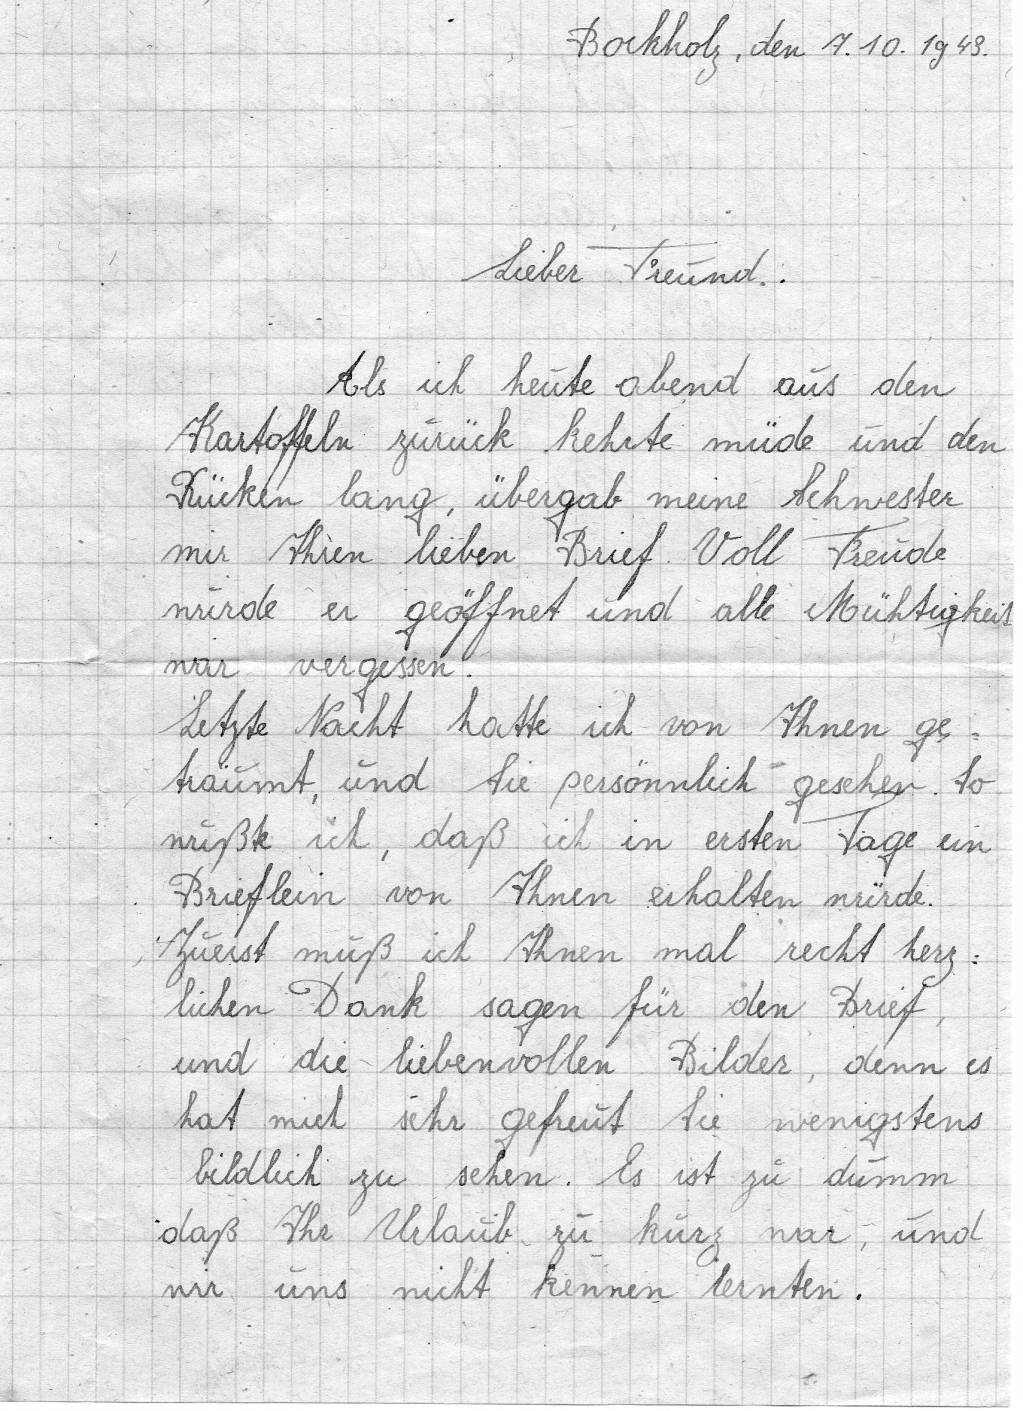 Bockholz, den 7.10.1943.
Lieber Freund..
Als ich heute abend aus den
Kartoffeln zurück kehrte müde und den
Rücken lang, übergab meine Schwester
mir Ihren lieben Brief. Voll Freude
wurde er geöffnet und alle Mühtigkeit
war vergessen.
Letzte Nacht hatte ich von Ihnen ge=
träumt, und Sie persönnlich gesehen. So
wußte ich, daß ich in ersten Tage ein
Brieflein von Ihnen erhalten würde.
Zuerst muß ich Ihnen mal recht herz=
lichen Dank sagen für den Brief,
und die liebenvollen Bilder, denn es
hat mich sehr gefreut Sie wenigstens
bildlich zu sehen. Es ist zu dumm
daß Ihr Urlaub zu kurz war, und
wir uns nicht kennen lernten.